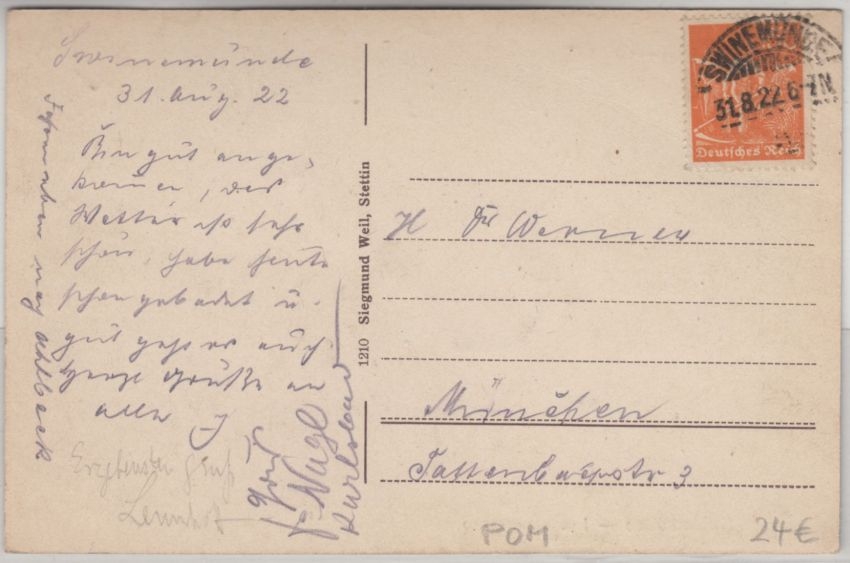 Swinemünde
31. Aug. 22
Bin gut ange,
kommen, das
Wetter ist sehr
schön, habe heute
schon gebadet u.
gut geht es auch
Herzl Grüße an
alle
nach Ahlbeck
Nagl
Karlsbad
Gruß
1210 Siegmund Weil, Stettin
SWINEMÜNDE
31.8.22.6-7N
Deutsches Reich
H Dr Werner
München
Tattenbachstr 3
POM
24€